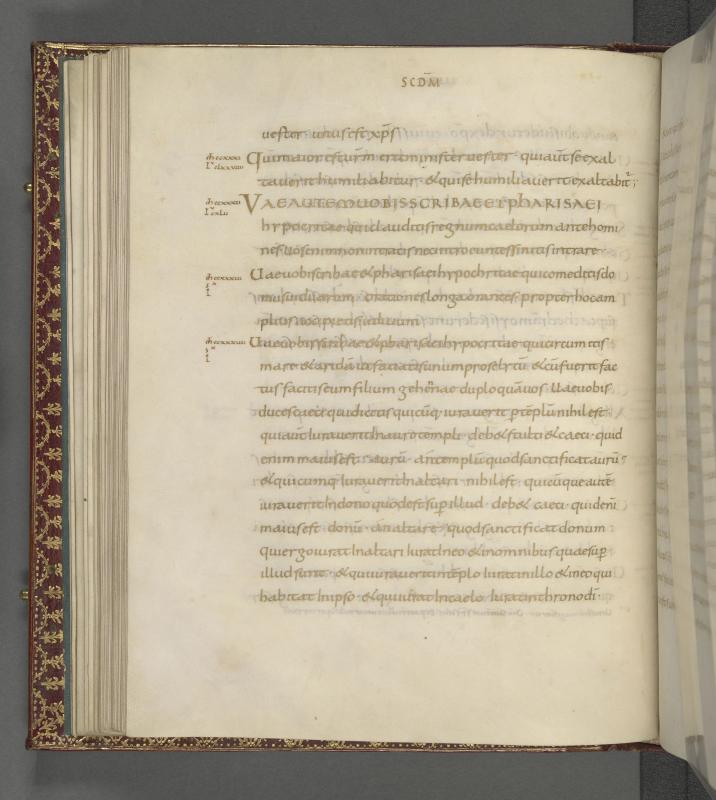 SCDM̄
uester · unus est xp̄s
Qui maior est ur̄m erit minister uester · quiaut̄ se exal
tauerit humiliabitur · & qui se humiliauerit exaltabit
VAE AUTEM UOBIS SCRIBAE ET PHARISAEI
hypocritae qui clauditis regnum caelorum ante homi
nes · Uos enim non intratis nec introeuntes sinitis intrare ·
Uae uobis scribae & pharisaei hypochritae qui comeditis do
mus uiduarum · orationes longas orantes · propter hoc am
plius accipietis iudicium
Uae uobis scribae & pharisaei hypocritae quia circumitis
mare & aridā ut faciatis unum proselytū & cū fuerit fac
tus facitis eum filium gehennae duplo quā uos · Uae uobis
duces caeci qui dicitis quicūq; iurauerit p templū nihil est ·
quiaut̄ iurauerit In auro templi · deb& stulti & caeci · quid
enim maius est · aurū · an templū quod sanctificat aurū
& quicumq; Iurauerit In altari · nihil est · quicūque autē
iurauerit In dono quod est sup illud · deb& caeci · quid enī
maius est · donū · an altare · quod sanctificat donum
qui ergo iurat In altari Iurat In eo & in omnibus quae sup
illud sunt · & qui iurauerit in tēplo Iurat in illo & in eo qui
habitat In ipso · & qui iurat In caelo Iurat in throno dī ·